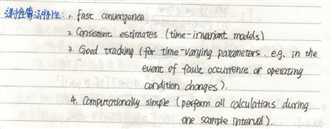 1. fast convergence
2. Consistent estimates (time-invariant models)
3. Good tracking (for time-varying parameters e.g. in the
event of fault occurrence or operating
condition changes).
4. Computationally simple (perform all calculations during
one sample interval).